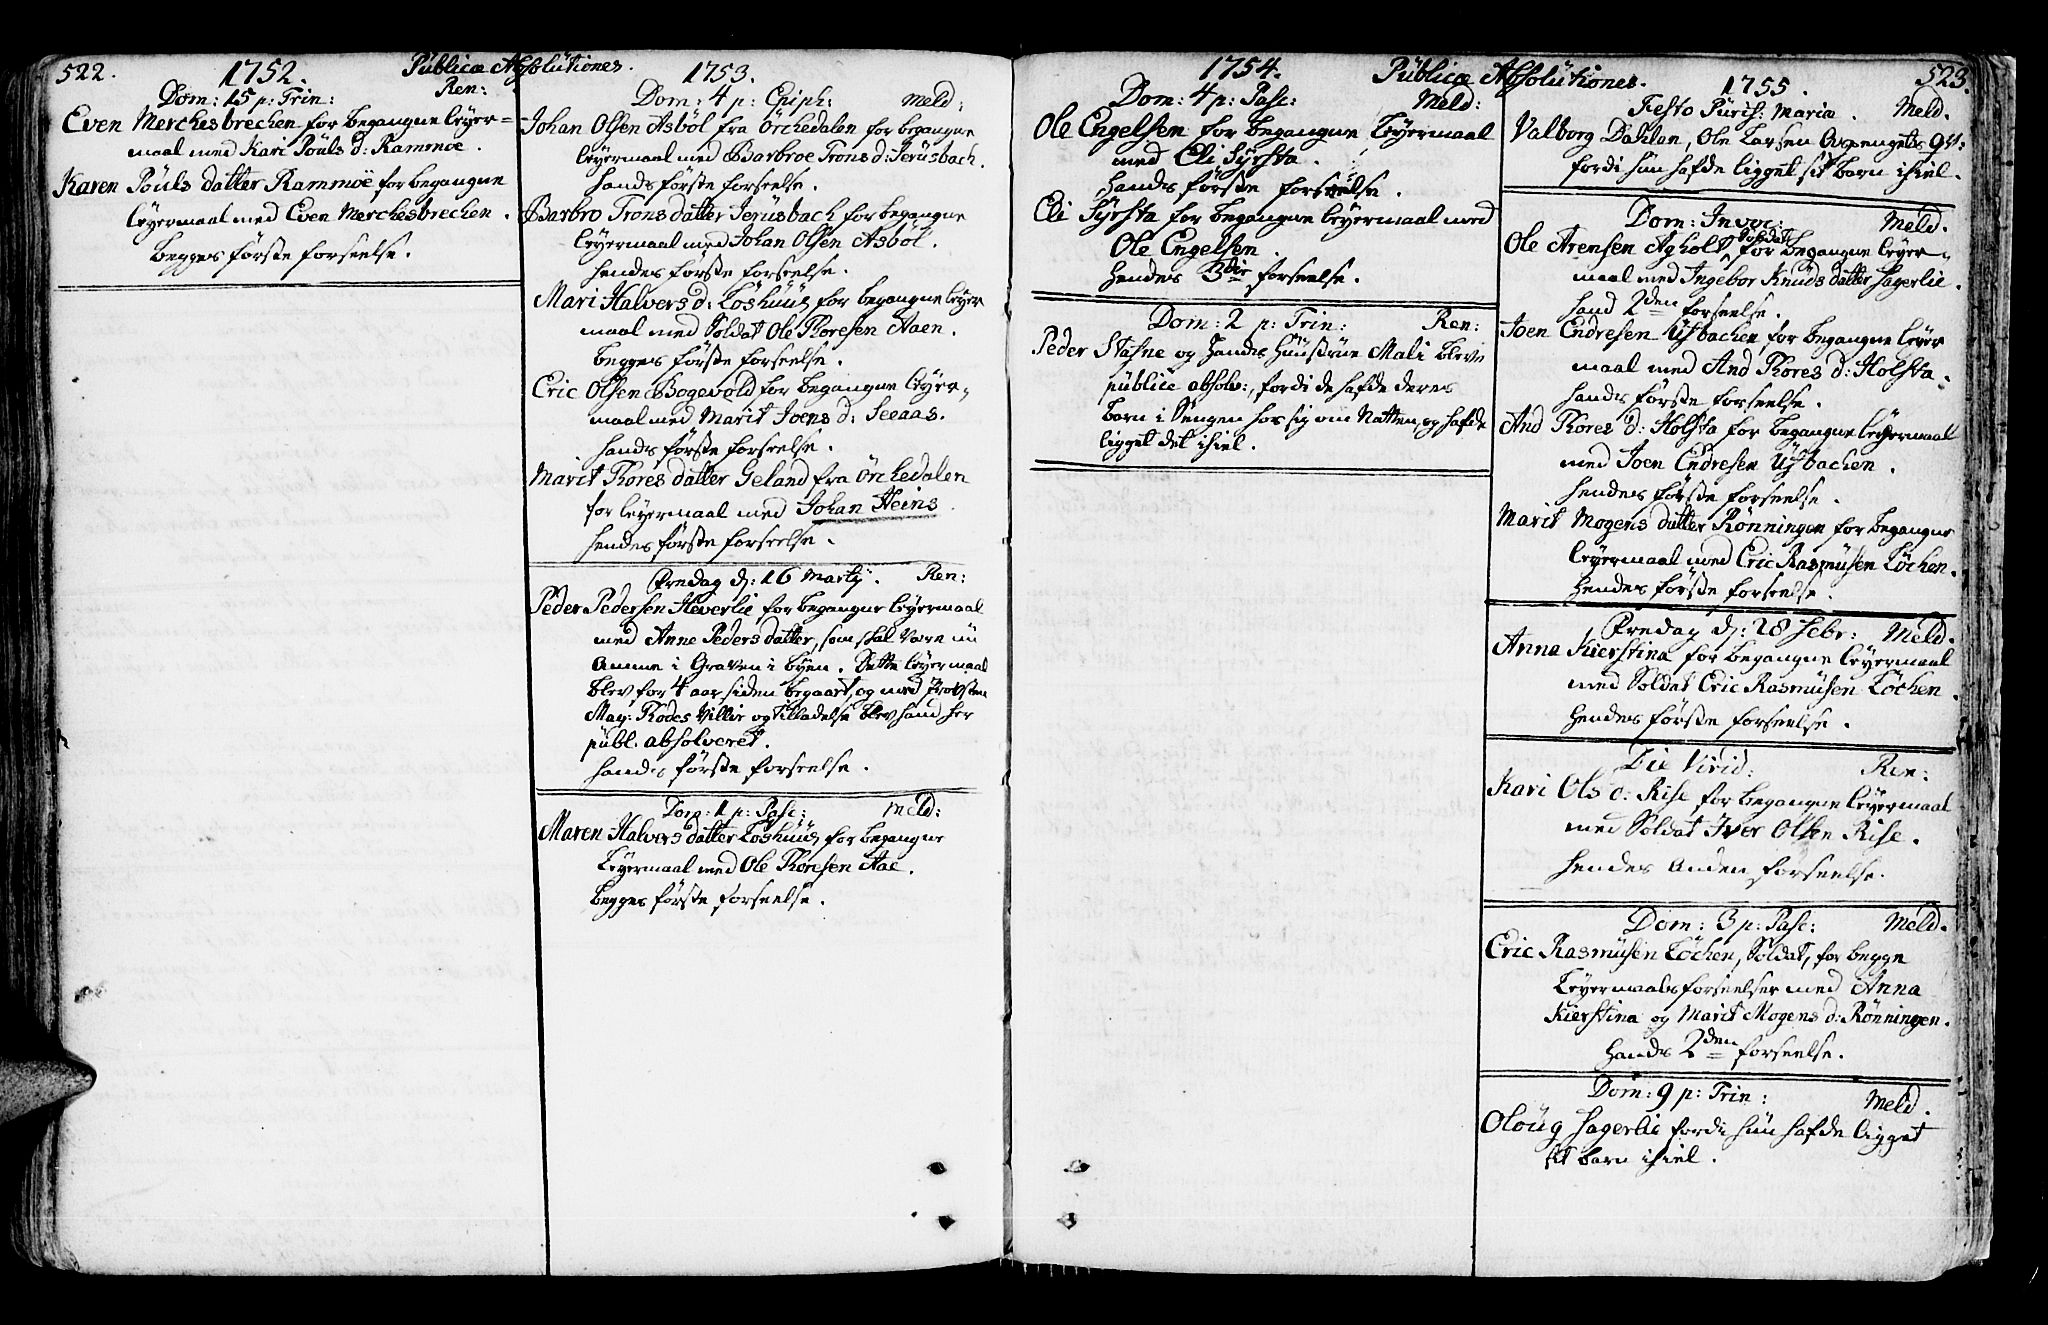 522.
1752.
Publicæ Absolutiones.
Dom: 15 p: Trin:
Ren:
Even Merchesbrechen for begangne leyer=
maal med Kari Pouls d: Rammoe.
Karen Pouls datter Rammoe for begangne
leyermaal med Even Merchesbrechen.
Begges første forseelse.
1753.
Dom: 4 p: Epiph: Meld:
Johan Olsen Asböl fra Örchedalen for begangne
leyermaal med Barbroe Trons d: Jerusbach.
Hands første forseelse.
Barbro Trons datter Jerusbach for begangne
leyermaal med Johan Olsen Asböl.
Hendes første forseelse.
Mari Halvers d: Loshuus for begangne leyer
maal med Soldat Ole Thoresen Aaen.
Begges første forseelse.
Eric Olsen Bogevold for begangne leyer-
maal med Marit Joens d: Seeaas.
Hands første forseelse.
Marit Thores datter Geland fra Örchedalen
for leyermaal med Johan Heins.
Hendes første forseelse.
Fredag d: 16 Martij. Ren:
Peder Pedersen Heverlie for begangne leyermaal
med Anne Peders datter, som skal være nu
Amme i Graven i byen. Dette leyermaal
blev for 4 aar siden begaaet, og med Provsten
Mag: Rodes Villie og tilladelse blev hand her
publ. absolveret.
Hands første forseelse.
Dom: 1 p: Pasc: Meld:
Maren Halvers datter Loshuus for begangne
Leyermaal med Ole Thoresen Aae.
Begges første forseelse.
1754.
Publicæ Absolutiones.
Dom: 4 p: Pasc: Meld:
Ole Engelsen for begangne Leyermaal
med Eli Syrsta.
Hands første forseelse.
Eli Syrsta for begangne leyermaal med
Ole Engelsen.
Hendes 3die forseelse.
Dom: 2 p: Trin: Ren:
Peder Stafne og Hands Huustrue Mali bleve
publicè absolv:, fordi de hafde deres
barn i Sengen hos sig om Natten, og hafde
ligget det ihiel.
523.
1755.
Festo Purif: Mariæ. Meld.
Valborg Dahlan, Ole Larsen
fordi hun hafde ligget sit barn ihiel.
Dom: Invoc: Meld.
Ole Arensen Agholt Soldat for begangne leyer-
maal med Ingebor Knuds datter Hagerlie.
Hand 2den forseelse.
Joen Endresen Usbachen for begangne leyer
maal med And Thores d: Holsta.
Hands første forseelse.
And Thores d: Holsta for begangne leyermaal
med Joen Endresen Usbachen.
Hendes første forseelse.
Marit Mogens datter Rønningen for begangne
leyermaal med Eric Rasmusen Løchen.
Hendes første forseelse.
Fredag d: 28 Febr: Meld.
Anna Kierstina for begangne leyermaal
med Soldat Eric Rasmusen Løchen.
Hendes første forseelse.
Die Virid: Ren:
Kari Ols d: Rise for begangne leyermaal
med Soldat Iver Olsen Rise.
Hendes Anden forseelse.
Dom: 3 p: Pasc: Meld.
Eric Rasmusen Løchen, Soldat, for begge
Leyermaals forseelser med Anna
Kierstina og Marit Mogens d: Rønningen.
Hands 2den forseelse.
Dom: 9 p: Trin: Meld.
Oloug Hagerlie fordi hun hafde ligget
sit barn ihiel.